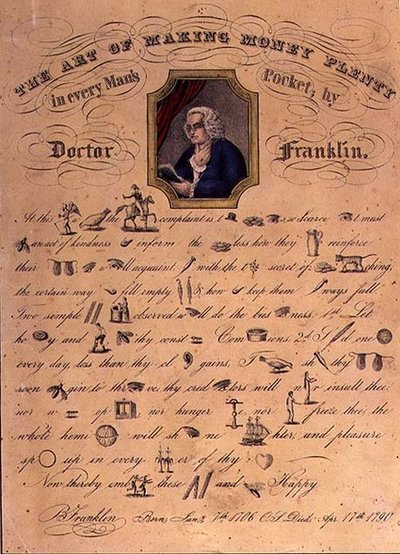 THE ART OF MAKING MONEY PLENTY
in every Man's Pocket; by
Doctor Franklin.
At this the complaint is t so Scarce t must
an act of kindness inform the less how they reinforce
their ll acquaint with the t secret of ching,
the certain way fill empty & how keep them ways full.
Two simple observed w ll do the bus ness. 1st Let
ho y and thy const Com ions. 2d S d one
every day, less than thy cl gains, sh thy
soon gin to th ve, thy cred ors will r insult thee
nor w op nor hunger e nor freeze thee, the
whole hemi will sh ne hter, and pleasure
sp up in every er of thy
Now thereby em these and Happy
B. Franklin Born, 7th 1706 O.S. Died Apr. 17th 1790